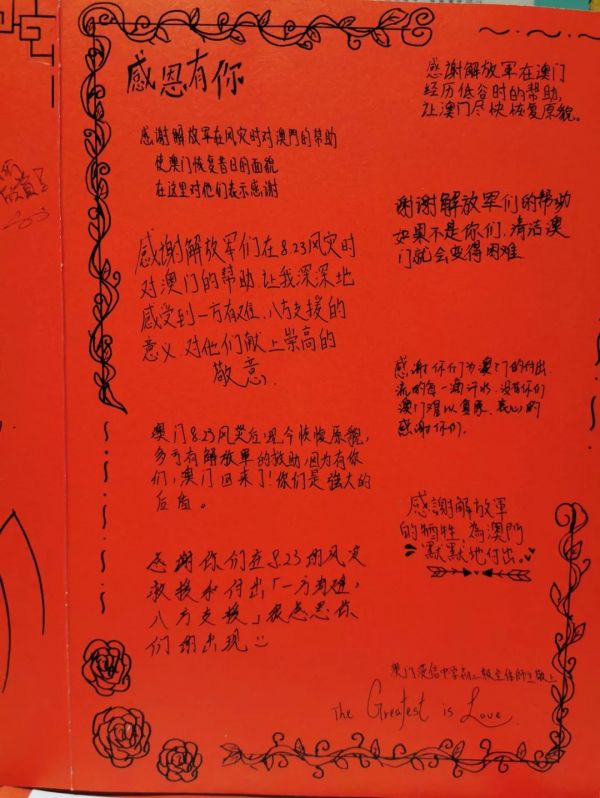 感恩有你
感谢解放军在风灾时对澳門的帮助
使澳门恢复昔日的面貌
在这里对他们表示感谢
感谢解放军们在8.23风灾时
对澳门的帮助 让我深深地
感受到一方有难、八方支援的
意义.对他们献上崇高的
敬意.
澳门8.23风灾后,现今恢复原貌,
多亏有解放军的救助,因为有你
们,澳门回来了!你们是强大的
后盾。
感谢你们在8.23期风灾
救援和付出「一方有难,
八方支援」很感恩你
们的出现
感谢解放军在澳门
经历低谷时的帮助,
让澳门尽快恢复原貌。
谢谢解放军们的帮助
如果不是你们,清洁澳
门就会变得困难
感谢你们为澳门的付出.
流的每一滴汗水.没有你们
澳门难以复原.衷心的
感谢你们.
感謝解放軍
的牺牲 為澳門
默默地付出。
澳门
中学高二级全体师生敬上
The Greatest is Love.